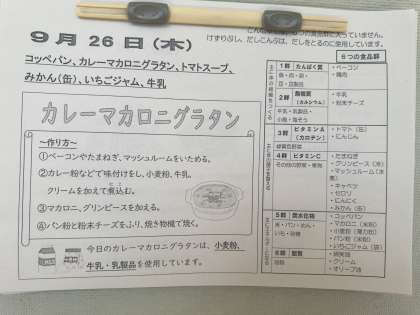 ６つの食品群に入っていません。
けずりぶし、だしこんぶは、だしをとるのに使用しています。
９月２６日（木）
コッペパン、カレーマカロニグラタン、トマトスープ、
みかん（缶）、いちごジャム、牛乳
カレーマカロニグラタン
～作り方～
①ベーコンやたまねぎ、マッシュルームをいためる。
②カレー粉などで味付けをし、小麦粉、牛乳、
クリームを加えて煮込む。
③マカロニ、グリンピースを加える。
④パン粉と粉末チーズをふり、焼き物機で焼く。
今日のカレーマカロニグラタンは、小麦粉、
牛乳・乳製品を使用しています。
６つの食品群
１群 たんぱく質
魚・肉・卵・
豆・豆製品
・ベーコン
・鶏肉
２群 無機質
（カルシウム）
牛乳・乳製品・
小魚・海そう
・牛乳
・粉末チーズ
３群 ビタミンＡ
（カロテン）
緑黄色野菜
・トマト（缶）
・にんじん
４群 ビタミンＣ
その他の野菜・果物
・たまねぎ
・グリンピース（冷）
・マッシュルーム（水煮）
・キャベツ
・セロリ
・にんにく
・みかん（缶）
５群 炭水化物
米・パン・めん・
いも・砂糖
・コッペパン
・マカロニ（米粉）
・小麦粉（薄力粉）
・パン粉（米粉）
・いちごジャム（袋）
６群 脂質
油脂
・クリーム
・オリーブ油